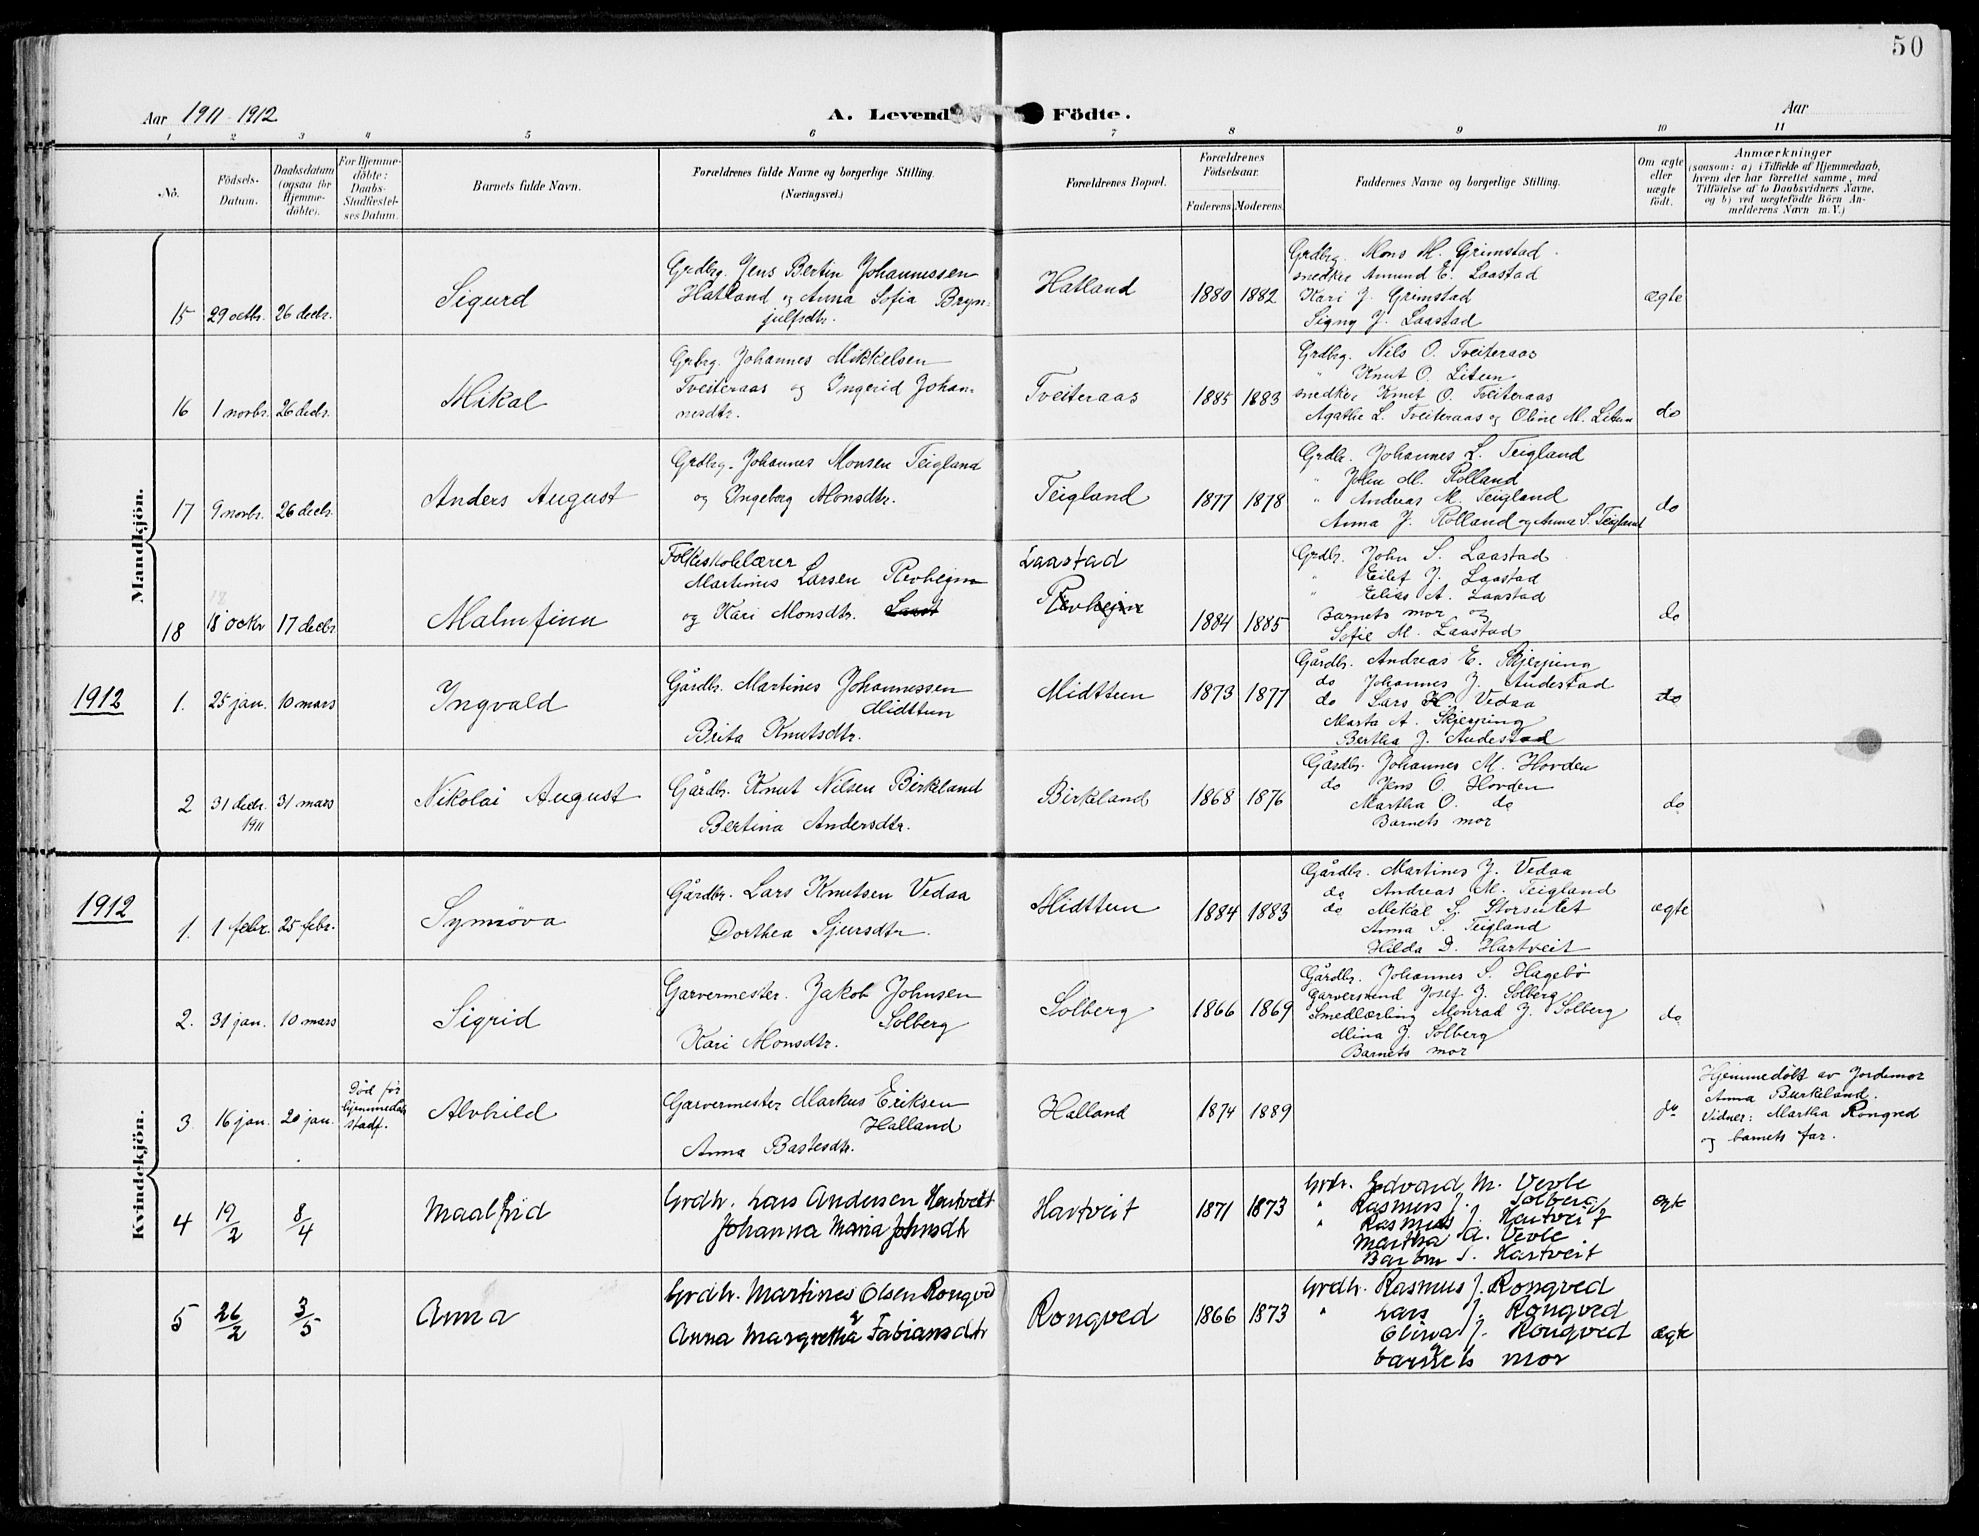 50
Aar 1911-1912
A. Levend
Födte.
Aar
1 2 3 4 5 6 7 8 9 10 11
No.
Födsels-
Datum.
Daabsdatum
(ogsaa for
Hjemme-
döbte).
For Hjemme-
döbte:
Daabs-
Stadfæstel-
ses Datum.
Barnets fulde Navn.
Forældrenes fulde Navne og borgerlige Stilling.
(Næringsvei.)
Forældrenes Bopæl.
Forældrenes
Födselsaar.
Faderens. Moderens.
Faddernes Navne og borgerlige Stilling.
Om ægte
eller
uægte
födt.
Anmærkninger
(saasom: a) i Tilfælde af Hjemmedaab,
hvem der har forrettet samme, med
Tilföielse af to Daabsvidners Navne,
og b) ved uægtefödte Börn An-
melderens Navn m. V.)
Mandkjön.
15 29 octbr. 26 decbr. Sigurd
Grdbrg. Jens Bertin Johannessen
Hatland og Anna Sofia Bryn-
julfsdtr.
Hatland 1880 1882
Grdbrg. Mons M. Grimstad
snedker Amund E. Laastad
Kari J. Grimstad
Signy J. Laastad
ægte
16 1 novbr. 26 decbr. Mikal
Grbrg. Johannes Mikkelsen
Tveiteraas og Ingerid Johan-
nesdtr.
Tveiteraas 1885 1883
Grdbrg. Nils O. Tveiteraas
" Knut O. Litun
snedker Knut O. Tveiteraas
Agathe L. Tveiteraas og Oline M. Litun
do
17 9 novbr. 26 decbr. Anders August
Grdbrg. Johannes Monsen Teigland
og Ingeborg Monsdtr.
Teigland 1877 1878
Grdbr. Johannes L. Teigland
" John M. Rolland
" Andreas M. Teigland
Anna J. Rolland og Anna S. Teigland
do
18 18 octbr 17 decbr Malmfinn
Folkeskolelærer
Martinus Larsen Revheim
og Kari Monsdtr. Laast
Laastad
Revheim
1884 1885
Grdbr. John S. Laastad
" Eilef J. Laastad
" Elias A. Laastad
Barnets mor og
Sofie M. Laastad
do
1912
1. 25 jan. 10 mars Ingvald
Gårdbr. Martines Johannessen
Midttun
Brita Knutsdtr.
Midttun 1873 1877
Gårdbr. Andreas E. Skjerping
do Johannes J. Audestad
do Lars K. Vedaa
Marta A. Skjerping
Bertha J. Audestad
do
2 31 decbr. 1911 31 mars Nikolai August
Gårdbr. Knut Nilsen Birkeland
Bertina Andersdtr.
Birkland 1868 1876
Gårdbr. Johannes M. Hovden
do Jens O. Hovden
Martha O. do
Barnets mor
do
Kvindekjön.
1912
1. 1 febr. 25 febr. Synnöva
Gårdbr. Lars Knutsen Vedaa
Dorthea Sjursdtr.
Midttun 1884 1883
Gårdbr. Martines J. Vedaa
do Andreas M. Teigland
do Mikal S. Storsutet
Anna S. Teigland
Hilda D. Hartveit
ægte
2. 31 jan. 10 mars Sigrid
Garvermester. Jakob Johnsen
Solberg
Kari Monsdtr.
Solberg 1866 1869
Gårdbr. Johannes S. Hagebö
Garversvend Josef J. Solberg
Smedlærling Monrad J. Solberg
Mina J. Solberg
Barnets mor
do
3. 16 jan. 20 jan.
Död för
hjemmedåb
stadf.
Alvhild
Garvermester Markus Eriksen
Halland
Anna Bastesdtr.
Halland 1874 1889
do
Hjemmedöbt av Jordemor
Anna Burkeland.
Vidner: Martha Rongved
og barnets far.
4 19/2 8/4 Maalfrid
Grdbr. Lars Andersen Hartveit
Johanna Maria Johnsdtr
Hartveit 1871 1873
Grdbr. Edvard M. Vevle
" Rasmus J. Solberg
" Rasmus J. Hartveit
Martha A. Vevle
Barbra S. Hartveit
ægte
5 26/2 3/5 Anna
Grdbr. Martines Olsen Rongved
Anna Margretha Fabiansdtr
Rongved 1866 1873
Grdbr. Rasmus J. Rongved
" Lars J. Rongved
Olina J. Rongved
barnets mor
ægte